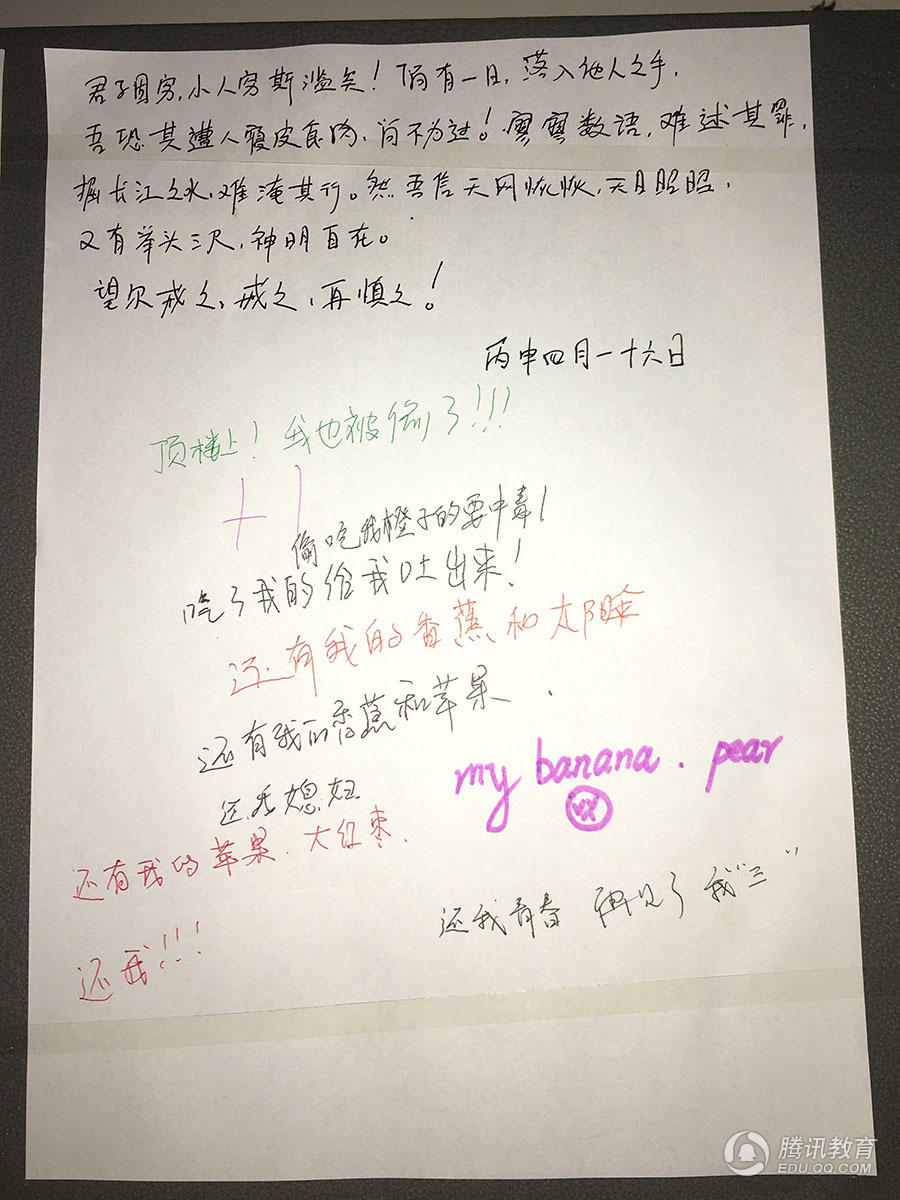 君子固穷,小人穷斯滥矣!倘有一日,落入他人之手,
吾恐其遭人寝皮食肉,尚不为过!寥寥数语,难述其罪,
掘长江之水,难淹其行。然吾信天网恢恢,天日昭昭,
又有举头三尺,神明自在。
望尔戒之,戒之,再慎之!
丙申四月一十六日
顶楼上!我也被偷了!!!
+1
偷吃我橙子的要中毒!
吃了我的给我吐出来!
还有我的香蕉和太阳伞
还有我的香蕉和苹果.
my banana. pear
还我媳妇
还有我的苹果.大红枣.
还我青春 再见了 我"三"
还我!!!
腾讯教育
EDU.QQ.COM